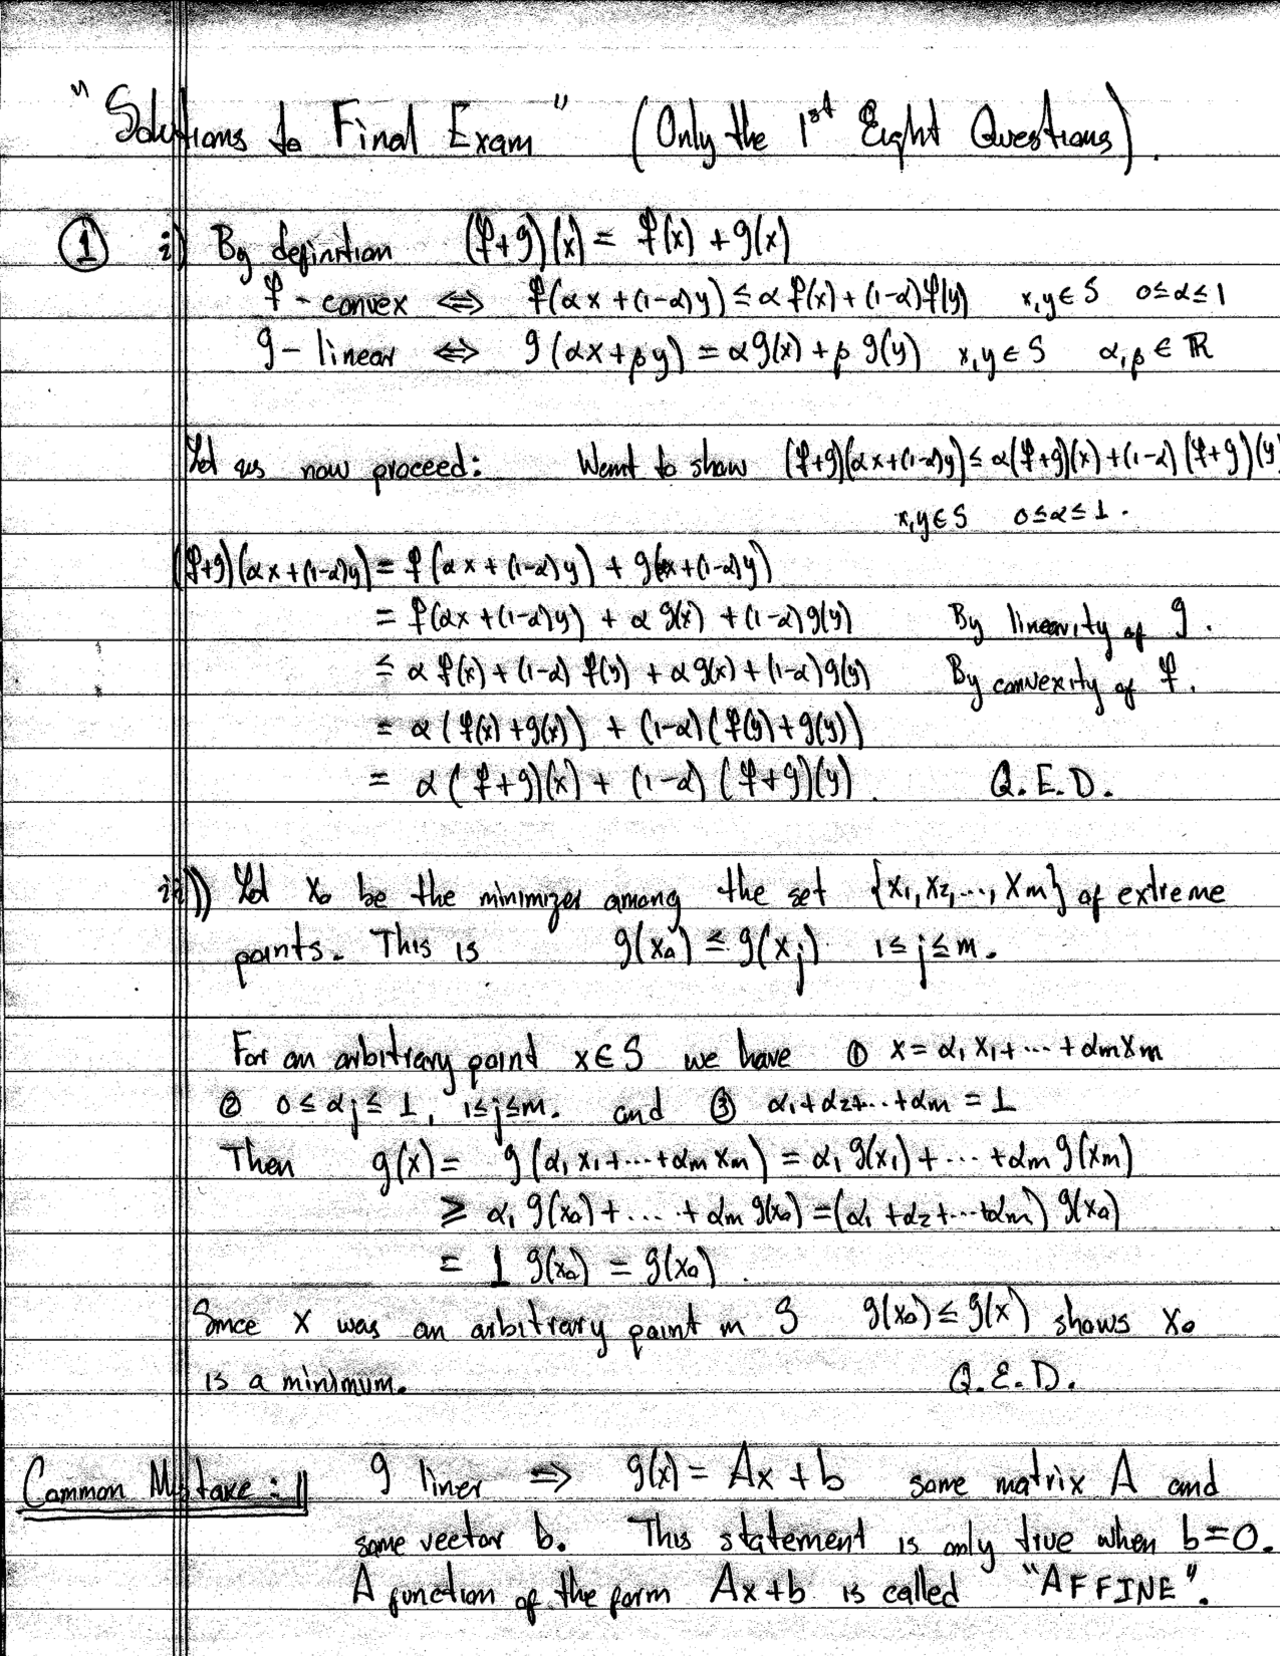 "Solutions to Final Exam" (Only the 1st Eight Questions).
① i) By definition (f+g)(x) = f(x) + g(x)
f - convex ⇔ f(αx + (1-α)y) ≤ α f(x) + (1-α)f(y) x,y ∈ S 0≤α≤1
g - linear ⇔ g(αx+βy) = αg(x) + β g(y) x,y ∈ S α,β ∈ ℝ
Let us now proceed: Want to show (f+g)(αx+(1-α)y) ≤ α(f+g)(x) + (1-α)(f+g)(y)
x,y∈S 0≤α≤1.
(f+g)(αx+(1-α)y) = f(αx + (1-α)y) + g(αx+(1-α)y)
= f(αx+(1-α)y) + α g(x) + (1-α)g(y) By linearity of g.
≤ α f(x) + (1-α) f(y) + α g(x) + (1-α)g(y) By convexity of f.
= α (f(x)+g(x)) + (1-α)(f(y)+g(y))
= α (f+g)(x) + (1-α) (f+g)(y). Q.E.D.
ii)) Let x₀ be the minimizer among the set {x₁, x₂, ..., xm} of extreme
points. This is g(x₀) ≤ g(xj) 1≤j≤m.
For an arbitrary point x∈S we have ① x = α₁x₁+ ... + αmxm
② 0≤αj≤1, 1≤j≤m. and ③ α₁+α₂+...+αm = 1
Then g(x) = g(α₁x₁+...+αmxm) = α₁g(x₁) + ... + αm g(xm)
≥ α₁ g(x₀) + .... + αm g(x₀) = (α₁+α₂+...+αm) g(x₀)
= 1 g(x₀) = g(x₀).
Since x was an arbitrary point in S g(x₀) ≤ g(x) shows x₀
is a minimum. Q.E.D.
Common Mistake: g liner ⇒ g(x) = Ax + b some matrix A and
some vector b. This statement is only true when b=0.
A function of the form Ax+b is called "AFFINE".